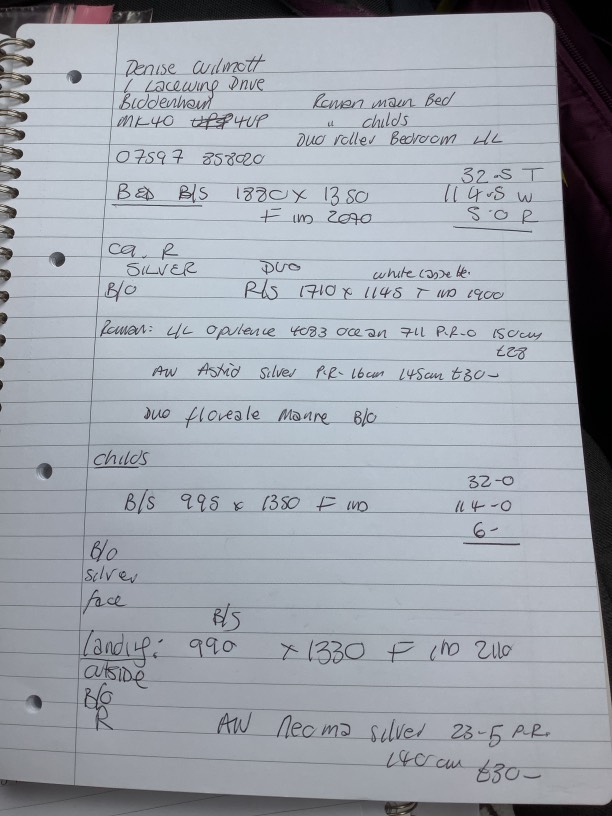 Denise Wilmott
1 Lacewing Drive
Biddenham Roman main Bed
MK40 4UP " childs
Duo roller Bedroom L/L
07597 858020
32-5 T
BED B/S 1880 x 1350 114-5 W
F IMD 2070 5-0 R
CA. R
SILVER DUO white casse te.
B/O R/S 1710 x 1145 T IMD 1900
Roman: L/L Opulence 4083 Ocean 711 P.R-0 150cm
£28
AW Astrid silver P.R- 16cm 145cm £30-
Duo floveale Manre B/O
childs
32-0
B/S 995 x 1350 F IMD 114-0
6-
B/O
silver
face
B/S
Landig: 990 x 1330 F IMD 2110
outside
B/O
R AW Neoma silver 23-5 P.R.
140cm £30-